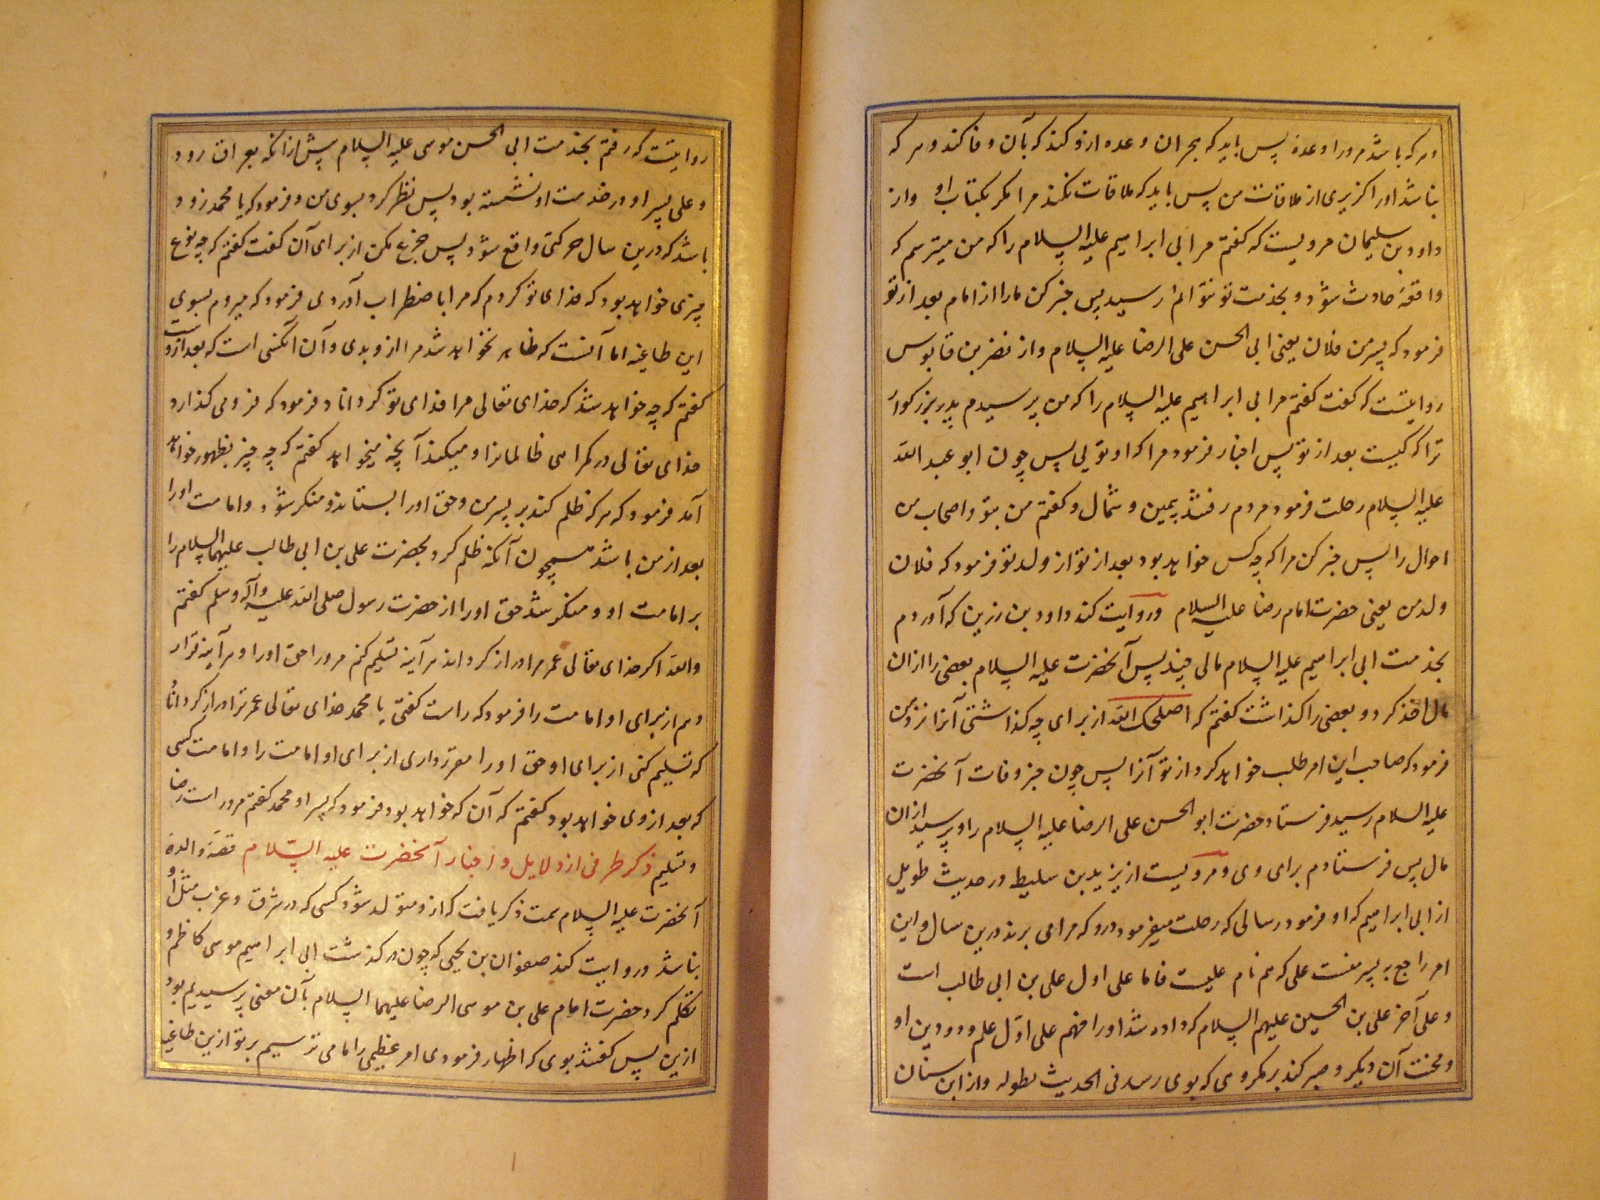 و هر که باشد مرور او عده پس باید که بجر ان وعده ازو کند که بآن وفا کند و هر که
بناشد اورا کزیری از ملاقات من پس باید که ملاقات نکند مرا مکر بکتاب او واز
داود بن سلیمان مرویست که کفتم مر ابی ابراهیم علیه السلام را که من میترسم که
واقعهٔ حادث شود و بخدمت تو نتوانم رسید پس خبر کن مارا از امام بعد از تو
فرمود که پسر من فلان یعنی ابی الحسن علی الرضا علیه السلام واز نصر بن قابوس
روایتست که کفت کفتم مر ابی ابراهیم علیه السلام را که من پرسیدم پدر بزرکوار
ترا که کیست بعد از تو پس اخبار فرمود مرا که او تویی پس چون ابو عبد الله
علیه السلام رحلت فرمود مردم رفتند بیمین و شمال و کفتم من بتو واصحاب من
احوال را پس خبر کن مرا که چه کس خواهد بود بعد از تو از ولد تو فرمود که فلان
ولد من یعنی حضرت امام رضا علیه السلام وروایت کند داود بن رزین که آوردم
بخدمت ابی ابراهیم علیه السلام مالی چند پس آنحضرت علیه السلام بعضی را ازان
مال اخذ کرد و بعضی را کذاشت کفتم که اصلحک الله از برای چه کذاشتی آنرا نزد من
فرمود که صاحب این امر طلب خواهد کرد از تو آنرا پس چون خبر وفات آنحضرت
علیه السلام رسید فرستاد حضرت ابو الحسن علی الرضا علیه السلام را و پرسید ازان
مال پس فرستادم برای وی ومرویست از یزید بن سلیط در حدیث طویل
از ابی ابراهیم که او فرمود در سالی که رحلت میفرمود درو که مرا می برند درین سال و این
امر راجع به پسر منست علی که هم نام علیست فاما علی اول علی بن ابی طالب است
و علی آخر علی بن الحسین علیهم السلام که داده شد اورا فهم علی اول علم و ود و دین او
ومحنت آن دیکر و صبر کند بر مکروهی که بوی رسد فی الحدیث بطوله واز ابن سنان
روایتست که رفتم بخدمت ابی الحسن موسی علیه السلام پیش ازانکه بعراق رود
و علی پسر او در خدمت او نشسته بود پس نظر کرد بسوی من و فرمود که یا محمد زود
باشد که درین سال حرکتی واقع شود پس جزع مکن از برای آن کفت کفتم که چه نوع
چیزی خواهد بود که خدای تو کردم که مرا باضطراب آوردی فرمود که میروم بسوی
این طاغیه اما آنست که ظاهر نخواهد شد مرا ازو بدی و آن انکسی است که بعد ازوست
کفتم که چه خواهد شد که خدای تعالی مرا فدای تو کرداناد فرمود که فرو می کذارد
خدای تعالی در کمراهی ظالمانرا و میکند آنچه میخواهد کفتم که چه چیز بظهور خواهد
آمد فرمود که هر که ظلم کند بر پسر من وحق اورا بستاند و منکر شود و امامت اورا
بعد از من باشد همچون آنکه ظلم کرد بحضرت علی بن ابی طالب علیهما السلام را
بر امامت او و منکر شد حق اورا از حضرت رسول صلی الله علیه وآله وسلم کفتم
والله اکر خدای تعالی عمر مرا دراز کرداند هر آینه تسلیم کنم مرورا حق اورا و هر آینه قرار
دهم از برای او امامت را فرمود که راست کفتی یا محمد خدای تعالی عمر ترا دراز کرداناد
که تسلیم کنی از برای او حق اورا مقرر داری از برای او امامت را و امامت کسی
که بعد از وی خواهد بود کفتم که آن که خواهد بود فرمود که پسر او محمد کفتم مرور است رضا
وتسلیم ذکر طرفی از دلایل و اخبار آنحضرت علیه السلام قصهٔ والدهٔ
آنحضرت علیه السلام سمت ذکر یافت که ازو متولد شود کسی که در شرق و غرب مثل او
بناشد وروایت کند صفوان بن یحیی که چون درکذشت ابی ابراهیم موسی کاظم و
تکلم کرد حضرت امام علی بن موسی الرضا علیهما السلام بآن معنی پرسیدیم بود
ازین پس کفتند بوی که اظهار فرمودی امر عظیمی را ما می ترسیم بر تو ازین طاغیه